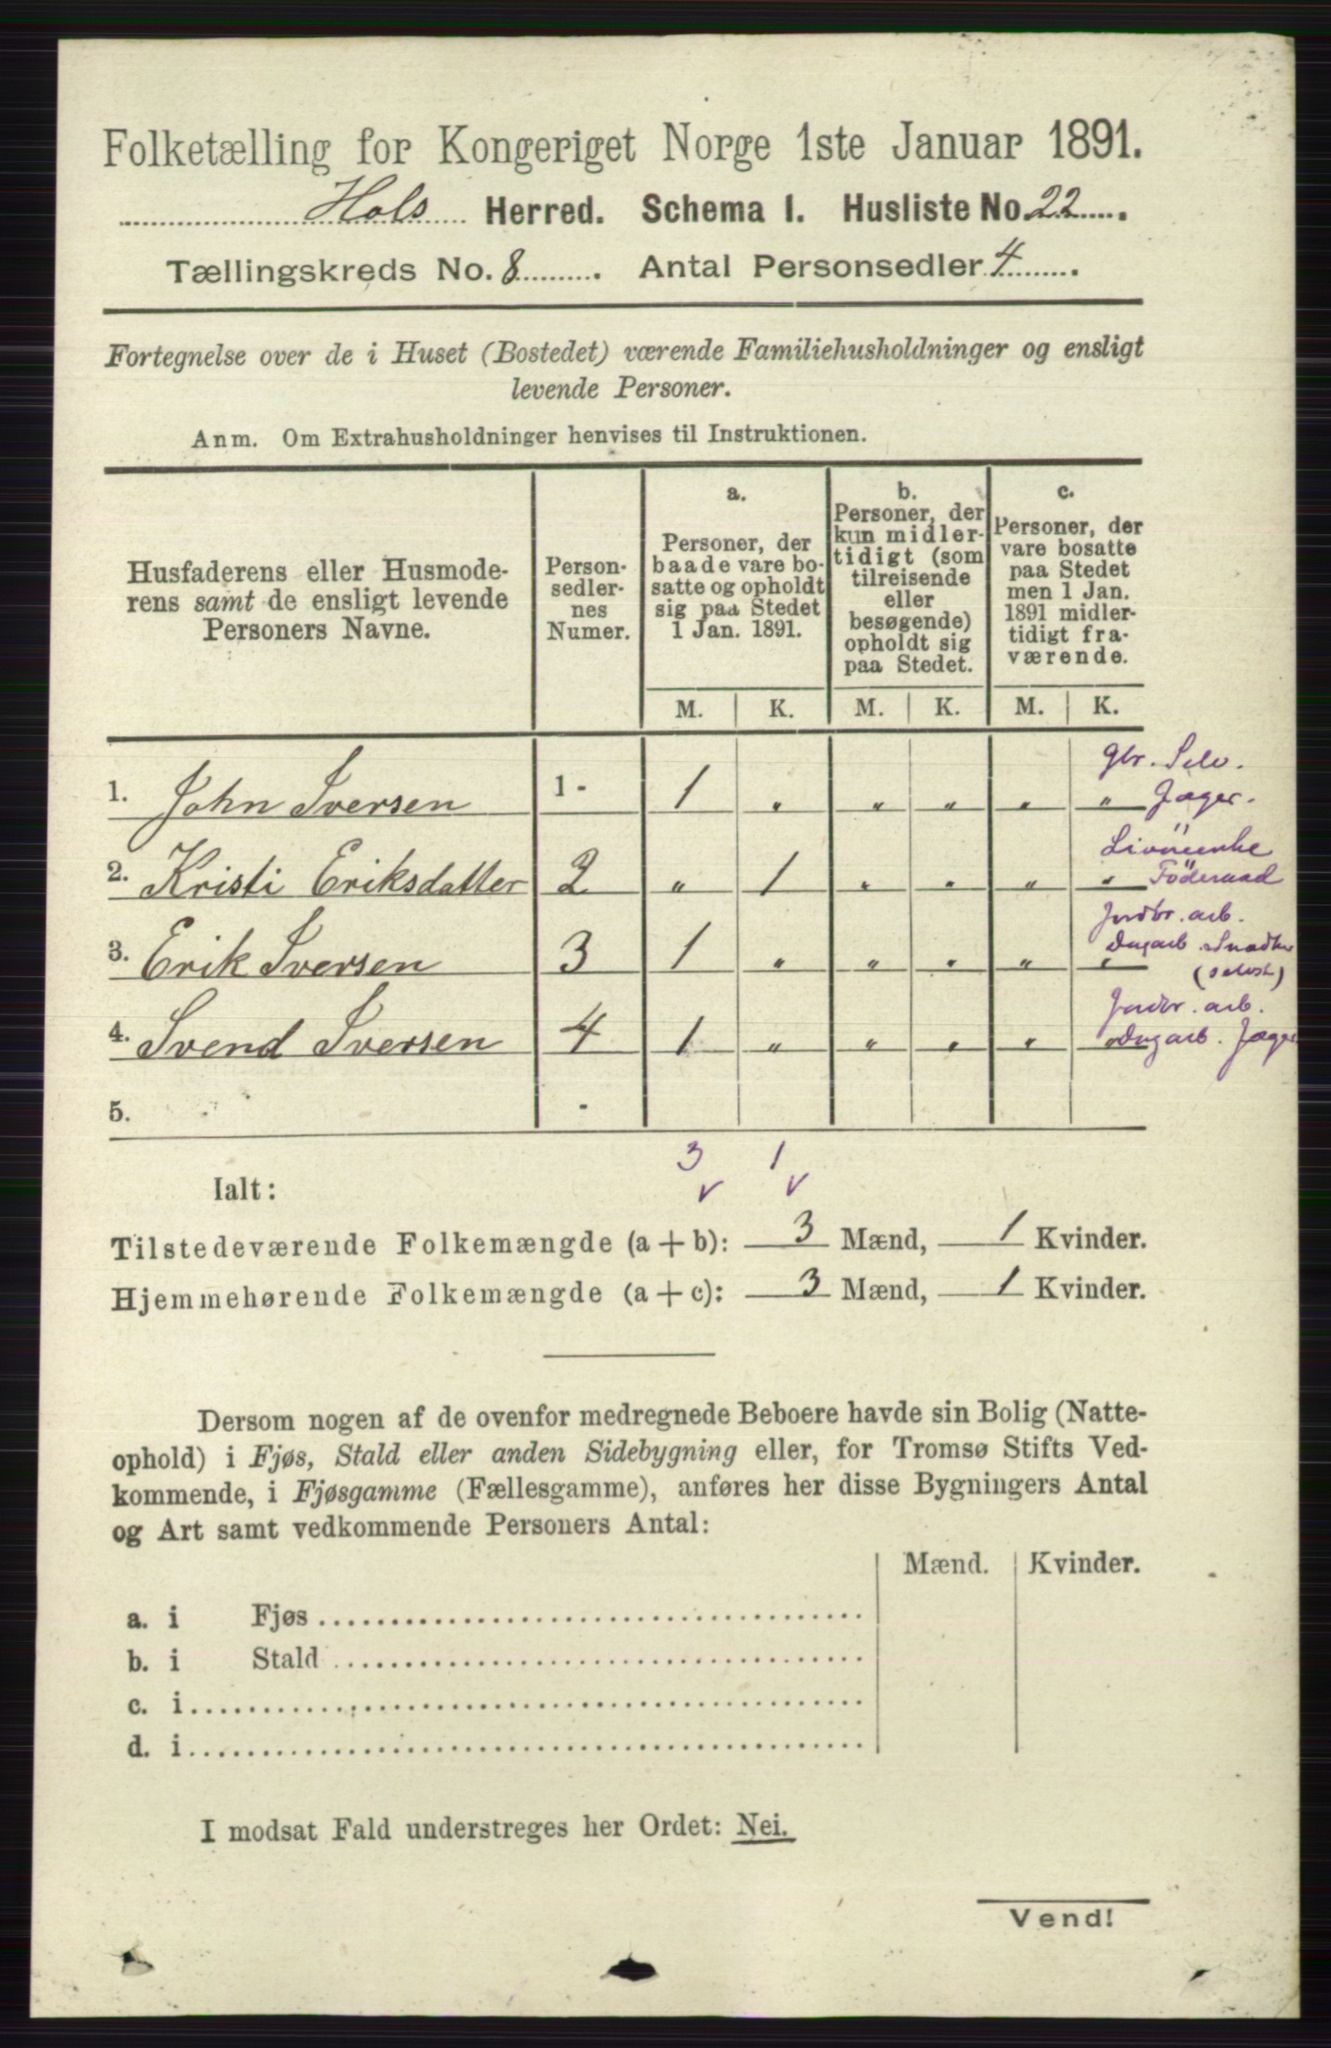 Folketælling for Kongeriget Norge 1ste Januar 1891.
Hols Herred. Schema I. Husliste No. 22
Tællingskreds No. 8. Antal Personsedler 4.
Fortegnelse over de i Huset (Bostedet) værende Familiehusholdninger og ensligt
levende Personer.
Anm. Om Extrahusholdninger henvises til Instruktionen.
Husfaderens eller Husmode-
rens samt de ensligt levende
Personers Navne.
Person-
sedler-
nes
Numer.
a.
Personer, der
baade vare bo-
satte og opholdt
sig paa Stedet
1 Jan. 1891.
b.
Personer, der
kun midler-
tidigt (som
tilreisende
eller
besøgende)
opholdt sig
paa Stedet.
c.
Personer, der
vare bosatte
paa Stedet
men 1 Jan.
1891 midler-
tidigt fra-
værende.
M. K. M. K. M. K.
Gbr. Selv.
1. John Iversen 1- 1 " " " " " Jæger.
2. Kristi Eriksdatter 2 " 1 " " " " Föderaad
Jordbr. arb.
3. Erik Iversen 3 1 " " " " " Dagarb.
Jordbr. arb.
4. Svend Iversen 4 1 " " " " " Dagarb. Jæger
5. -
3 1
v v
Ialt:
Tilstedeværende Folkemængde (a + b): 3 Mænd, 1 Kvinder.
Hjemmehørende Folkemængde (a + c): 3 Mænd, 1 Kvinder.
Dersom nogen af de ovenfor medregnede Beboere havde sin Bolig (Natte-
ophold) i Fjøs, Stald eller anden Sidebygning eller, for Tromsø Stifts Ved-
kommende, i Fjøsgamme (Fællesgamme), anføres her disse Bygningers Antal
og Art samt vedkommende Personers Antal:
Mænd. Kvinder.
a. i Fjøs
b. i Stald
c. i
d. i
I modsat Fald understreges her Ordet: Nei.
Vend!